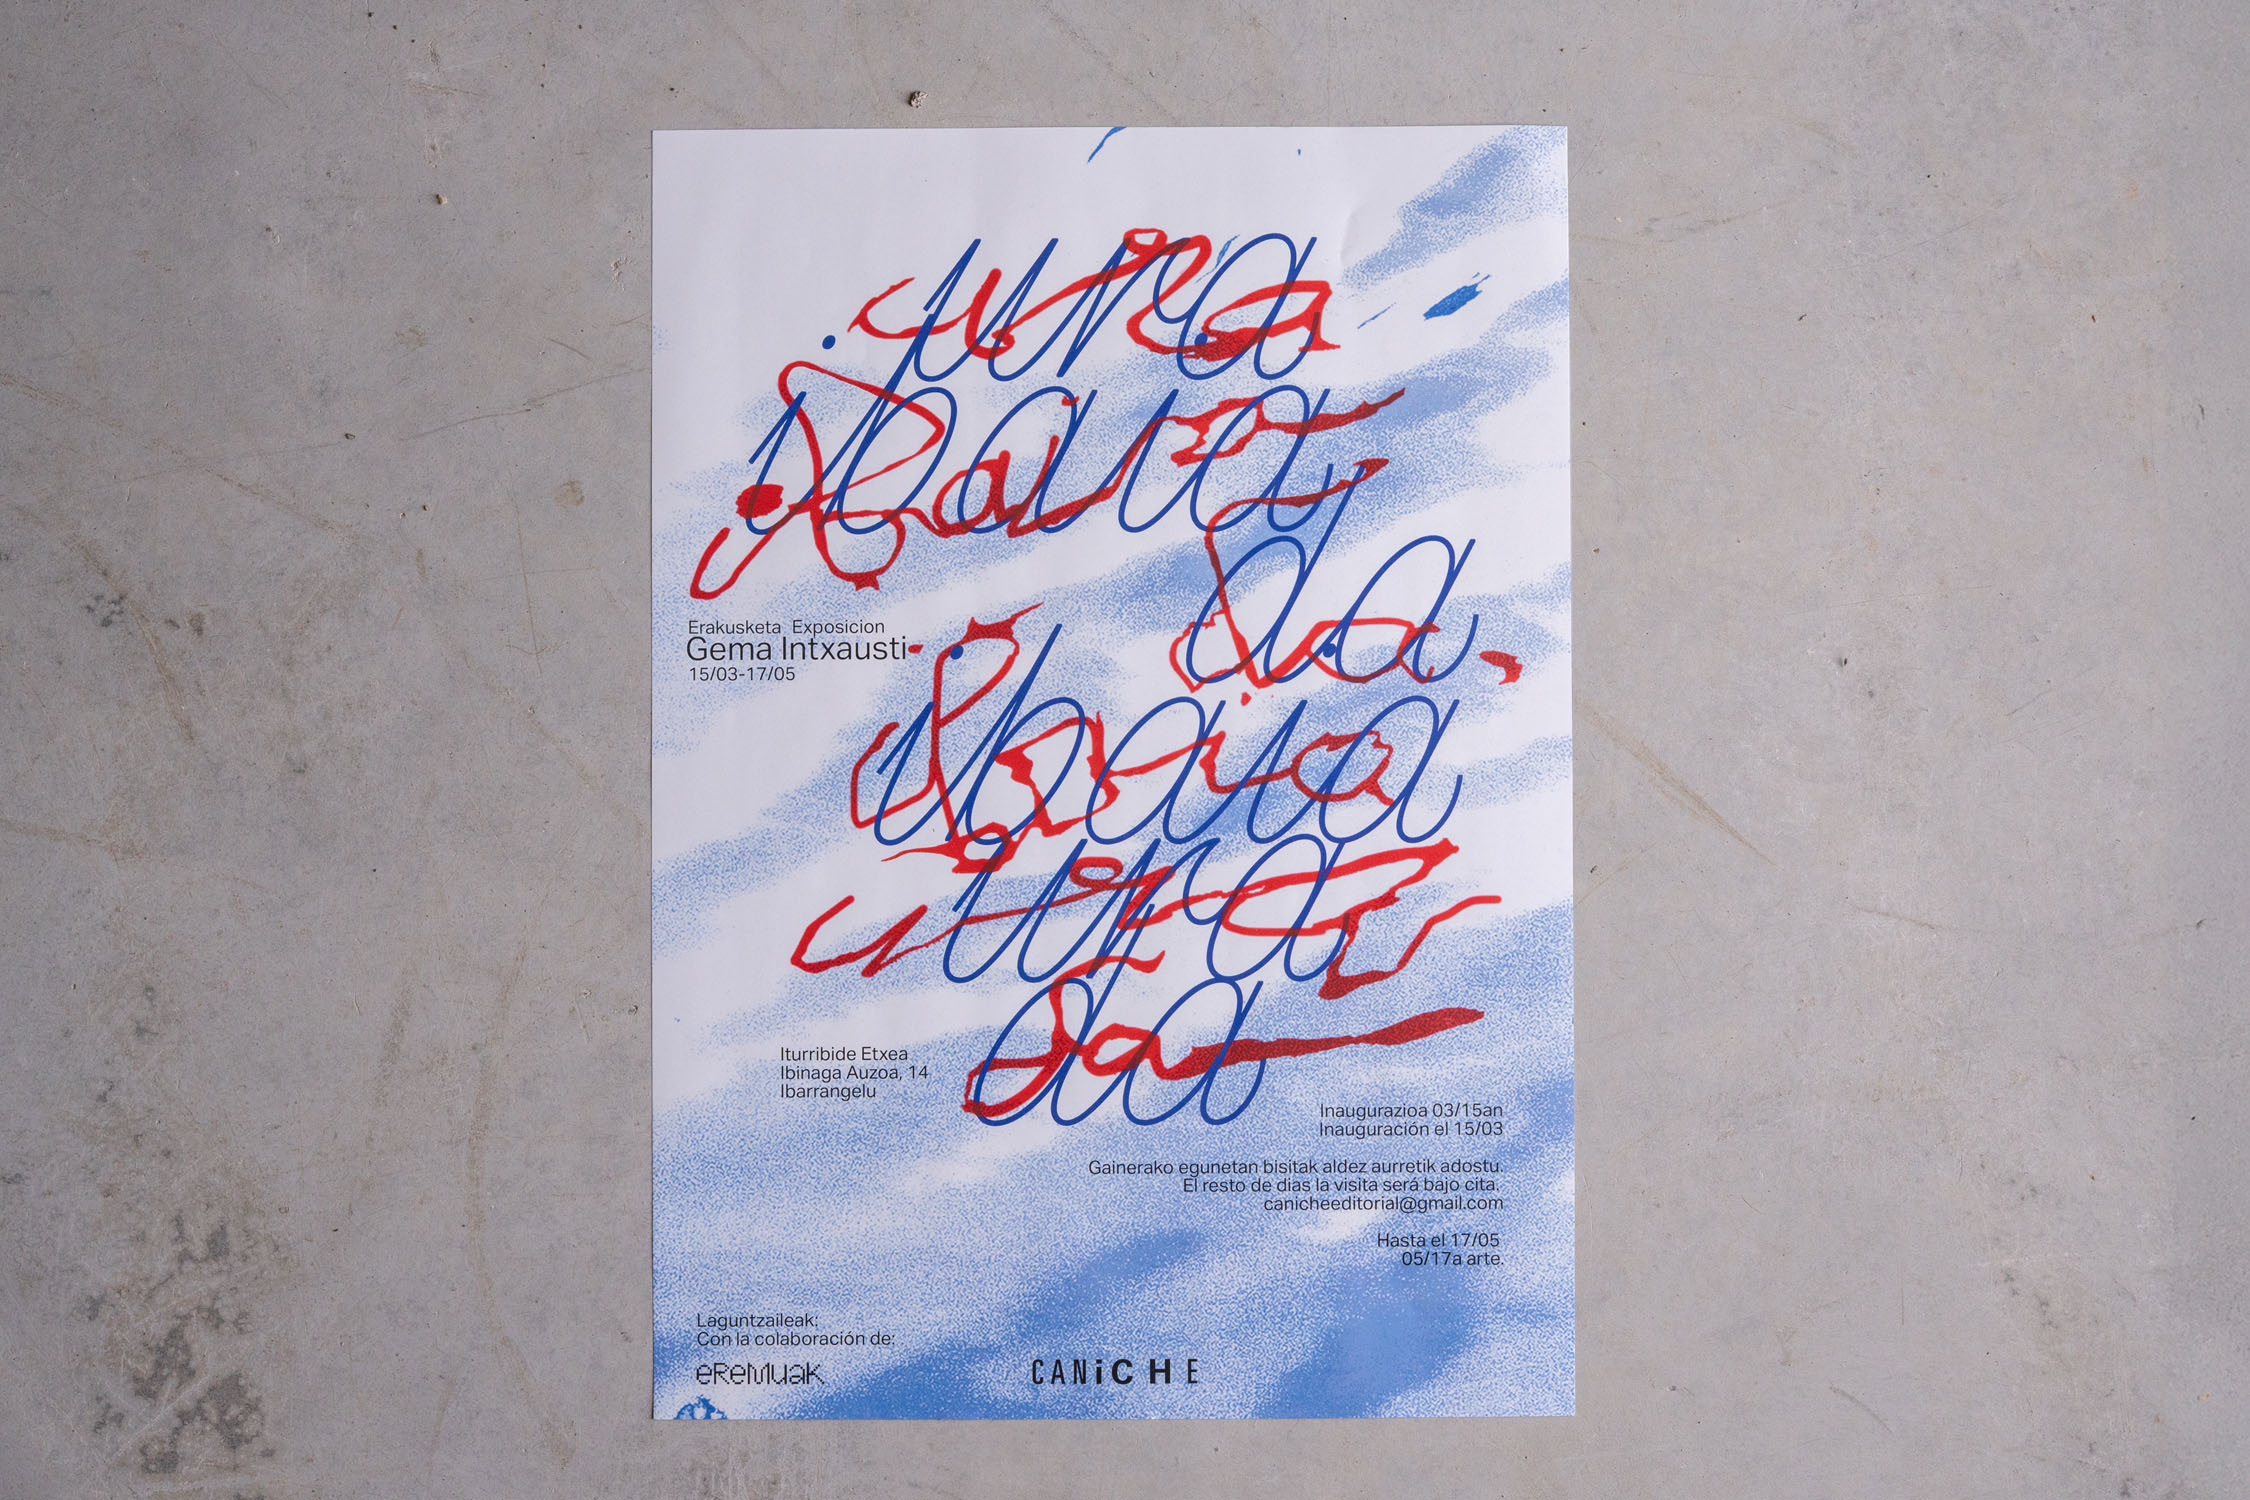 ura
ibaia
da
ibaia
ura
da
Erakusketa Exposicion
Gema Intxausti
15/03-17/05
Iturribide Etxea
Ibinaga Auzoa, 14
Ibarrangelu
Inaugurazioa 03/15an
Inauguración el 15/03
Gainerako egunetan bisitak aldez aurretik adostu.
El resto de dias la visita será bajo cita.
canicheeditorial@gmail.com
Hasta el 17/05
05/17a arte.
Laguntzaileak:
Con la colaboración de:
eReMuaK
CANiCHE